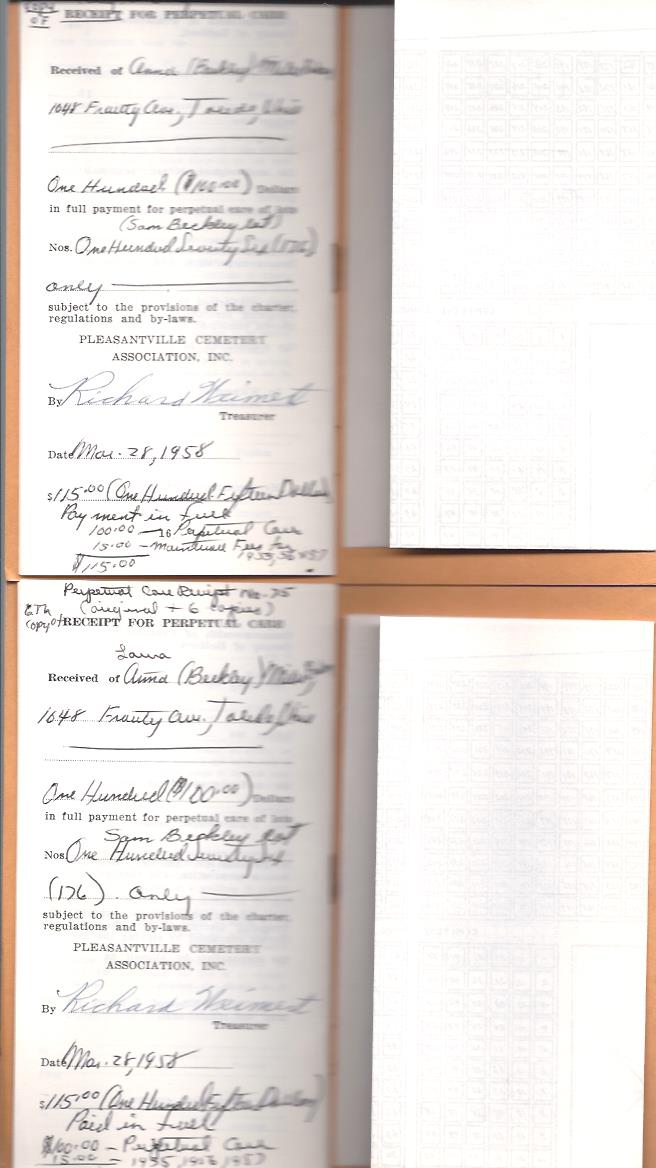 Copy
of RECEIPT FOR PERPETUAL CARE
Received of Anna (Beckley)
1048 Ave., Toledo, Ohio
One Hundred ($100.00) Dollars
in full payment for perpetual care of lots
(Sam Beckley lot)
Nos. One Hundred Seventy Six (176)
only
subject to the provisions of the charter,
regulations and by-laws.
PLEASANTVILLE CEMETERY
ASSOCIATION, INC.
By Richard Weimert
Treasurer
Date Mar. 28, 1958
$115.00 (One Hundred Fifteen Dollars)
Payment in full
100.00 — Perpetual Care
15.00 — Fees for
$115.00
Perpetual Care Receipt No. 75
(original + 6 copies)
6th
Copy of RECEIPT FOR PERPETUAL CARE
Laura
Received of Anna (Beckley)
1048 Ave., Toledo, Ohio
One Hundred ($100.00) Dollars
in full payment for perpetual care of lots
Sam Beckley lot
Nos. One Hundred Seventy Six
(176) only
subject to the provisions of the charter,
regulations and by-laws.
PLEASANTVILLE CEMETERY
ASSOCIATION, INC.
By Richard Weimert
Treasurer
Date Mar. 28, 1958
$115.00 (One Hundred Fifteen Dollars)
Paid in full
$100.00 — Perpetual Care
15.00 — 1955, 1956, 1957